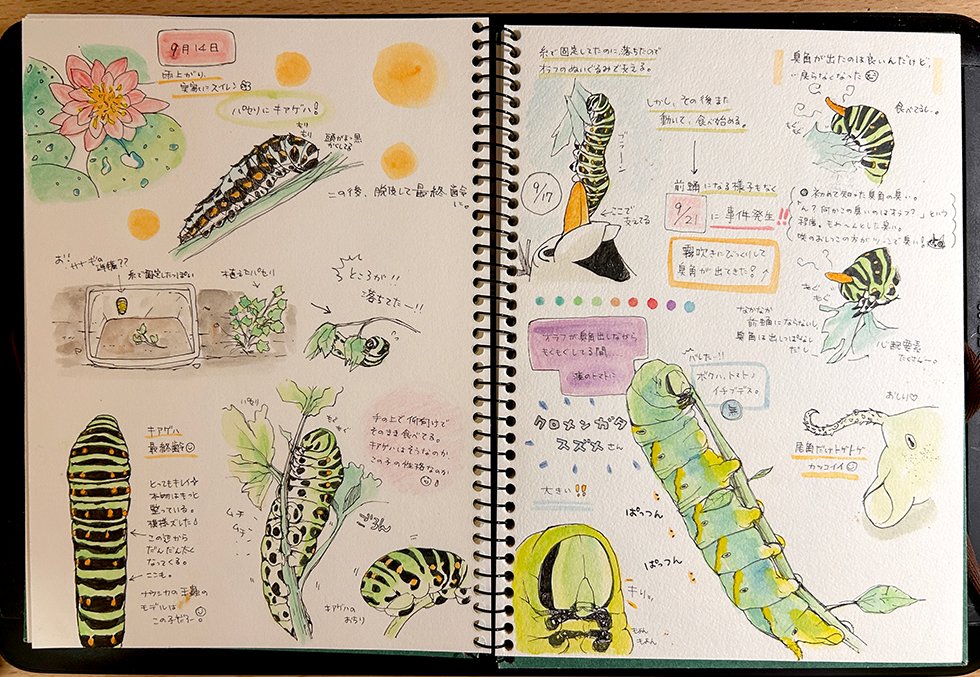 9月14日
雨上がり、
実家にスイレン♪
パセリにキアゲハ!
もり
もり
頭がまっ黒
かくしてる
この後、脱皮して最終齢
に。
お!!サナギの準備??
糸で固定したっぽい
植えたパセリ
ところが!!
落ちてた〜!!
キアゲハ
最終齢
とってもキレイ
本物はもっと
整っている。
模様ズレた
この辺から
だんだん太く
なってくる。
ここも。
ナウシカの王蟲の
モデルは
この子だろー!
パセリ
もぐ
もぐ
ムチ
ムチ
手の上で仰向けで
そのまま食べてる。
キアゲハはそうなのか
この子の性格なのか
ごろん
キアゲハの
おちり
糸で固定してたのに、落ちたので
オラフのぬいぐるみで支える。
しかし、その後また
動いて、食べ始める。
9/17
ここで
支えてる
前蛹になる様子もなく
9/21
に事件発生!!
霧吹きにびっくりして
臭角が出てきた!
臭角が出たのは良いんだけど、
戻らなくなった
食べてるし。
もぐ
初めて知った臭角の臭い。
「ん?何かこの臭いのはオラフ?」という
程度。もわ〜んとした臭い。
咲のおしっこの方がツーンで臭い!
もぐ
もぐ
なかなか
前蛹にならないし
臭角は出しっぱなし
だし、
心配要素
たくさん〜。
オラフが臭角出しながら
もぐもぐしてる間
隣のトマトに
バレたー!!
ボクハ、トマト♪
イチブデス。
無
クロメンガタ
スズメさん
大きい!!
ぱっつん
ぱっつん
キリッ
もよん
もよん
おしり♡
尾角だけトゲトゲ
カッコイイ